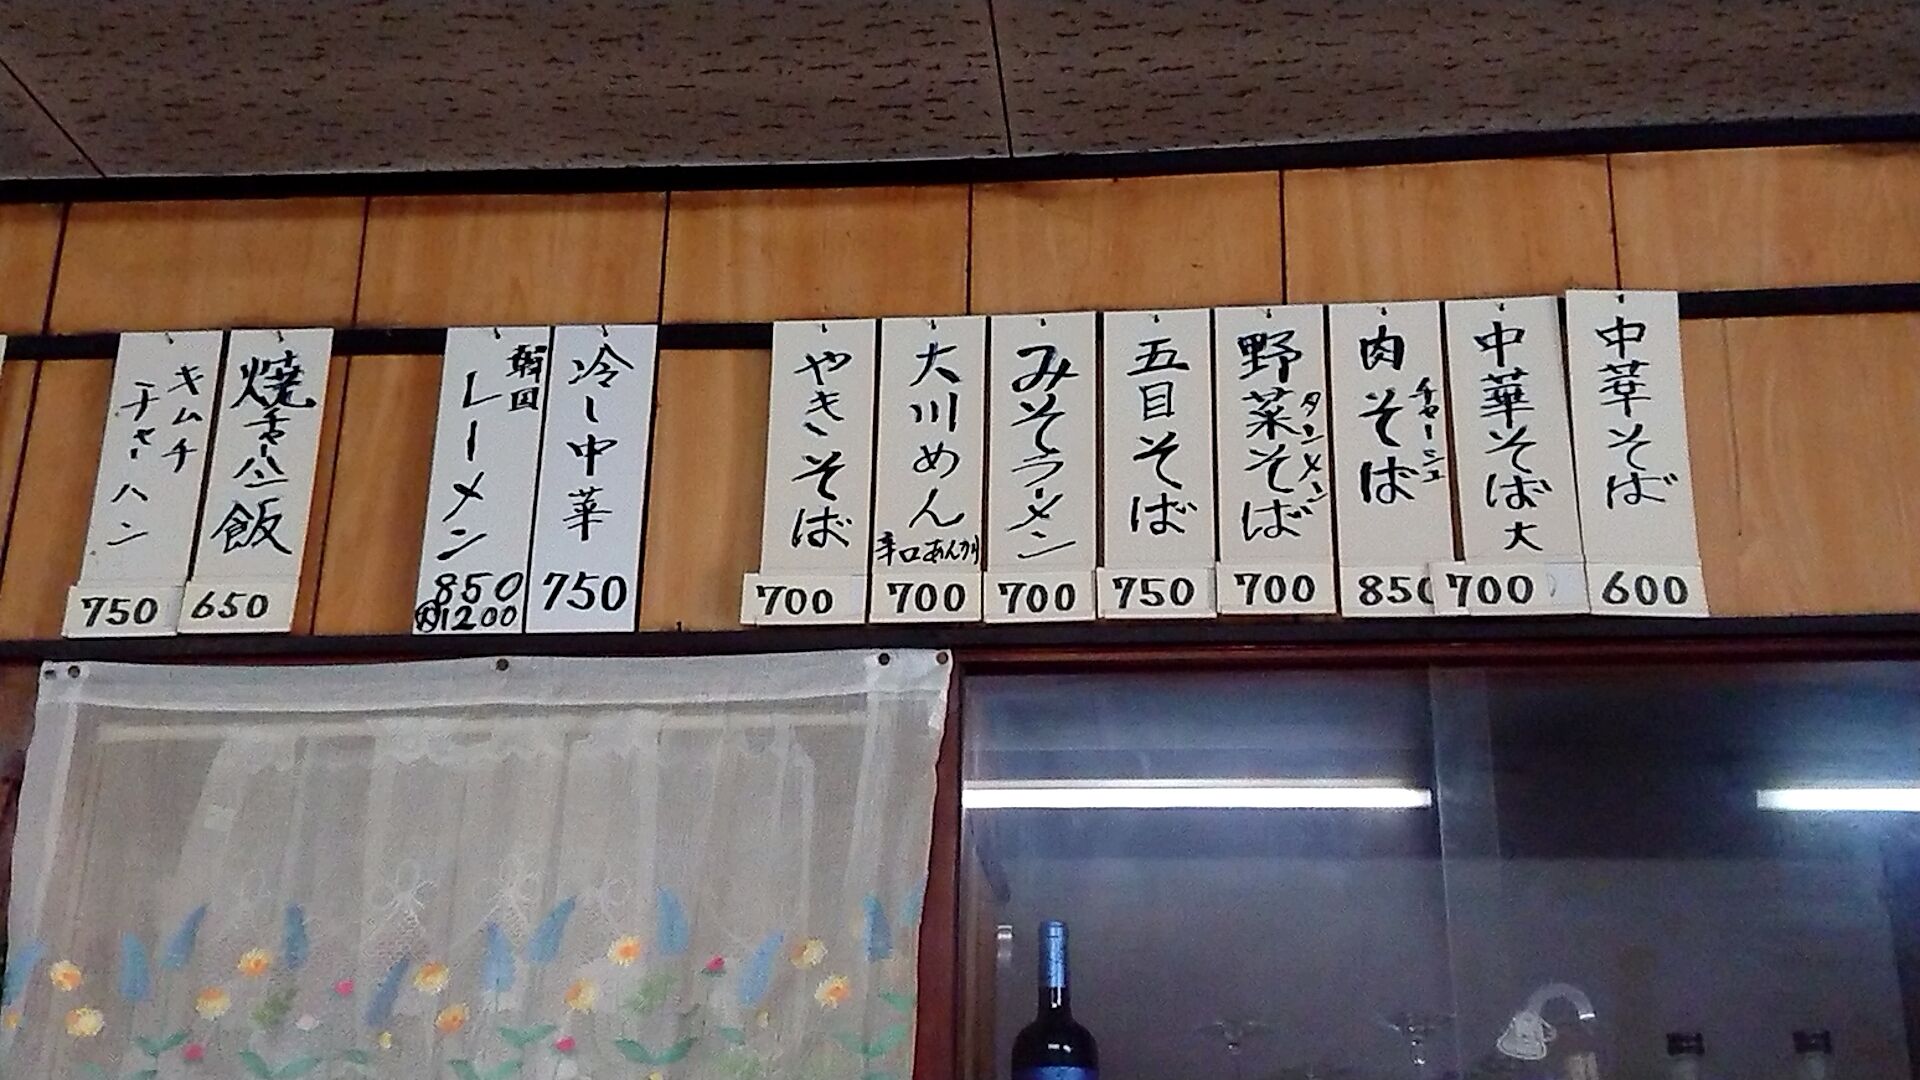 中華そば
600
中華そば大
700
肉そば
チャーシュー
850
野菜そば
タンメン
700
五目そば
750
みそラーメン
700
大川めん
辛口あんかけ
700
やきそば
700
冷し中華
750
韓国
レーメン
850
大1200
焼飯
チャーハン
650
キムチ
チャーハン
750